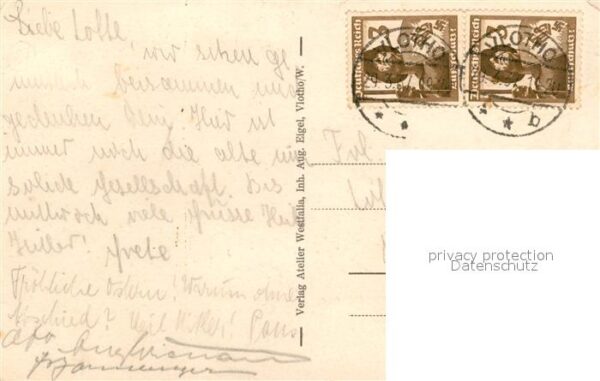 Liebe Lotte,
wir sitzen ge
mütlich beisammen und
gedenken Dein. Hier ist
immer noch die alte un
solide Gesellschaft. Bis
mittwoch viele Grüsse Heil
Hitler! Grete
Fröhliche Ostern! Warum ohne
Abschied? Heil Hitler!
Verlag Atelier Westfalia, Inh. Aug. Eigel, Vlotho/W.
Deutsches Reich
Deutsches Reich
VLOTHO
VLOTHO
a
Frl.
privacy protection
Datenschutz